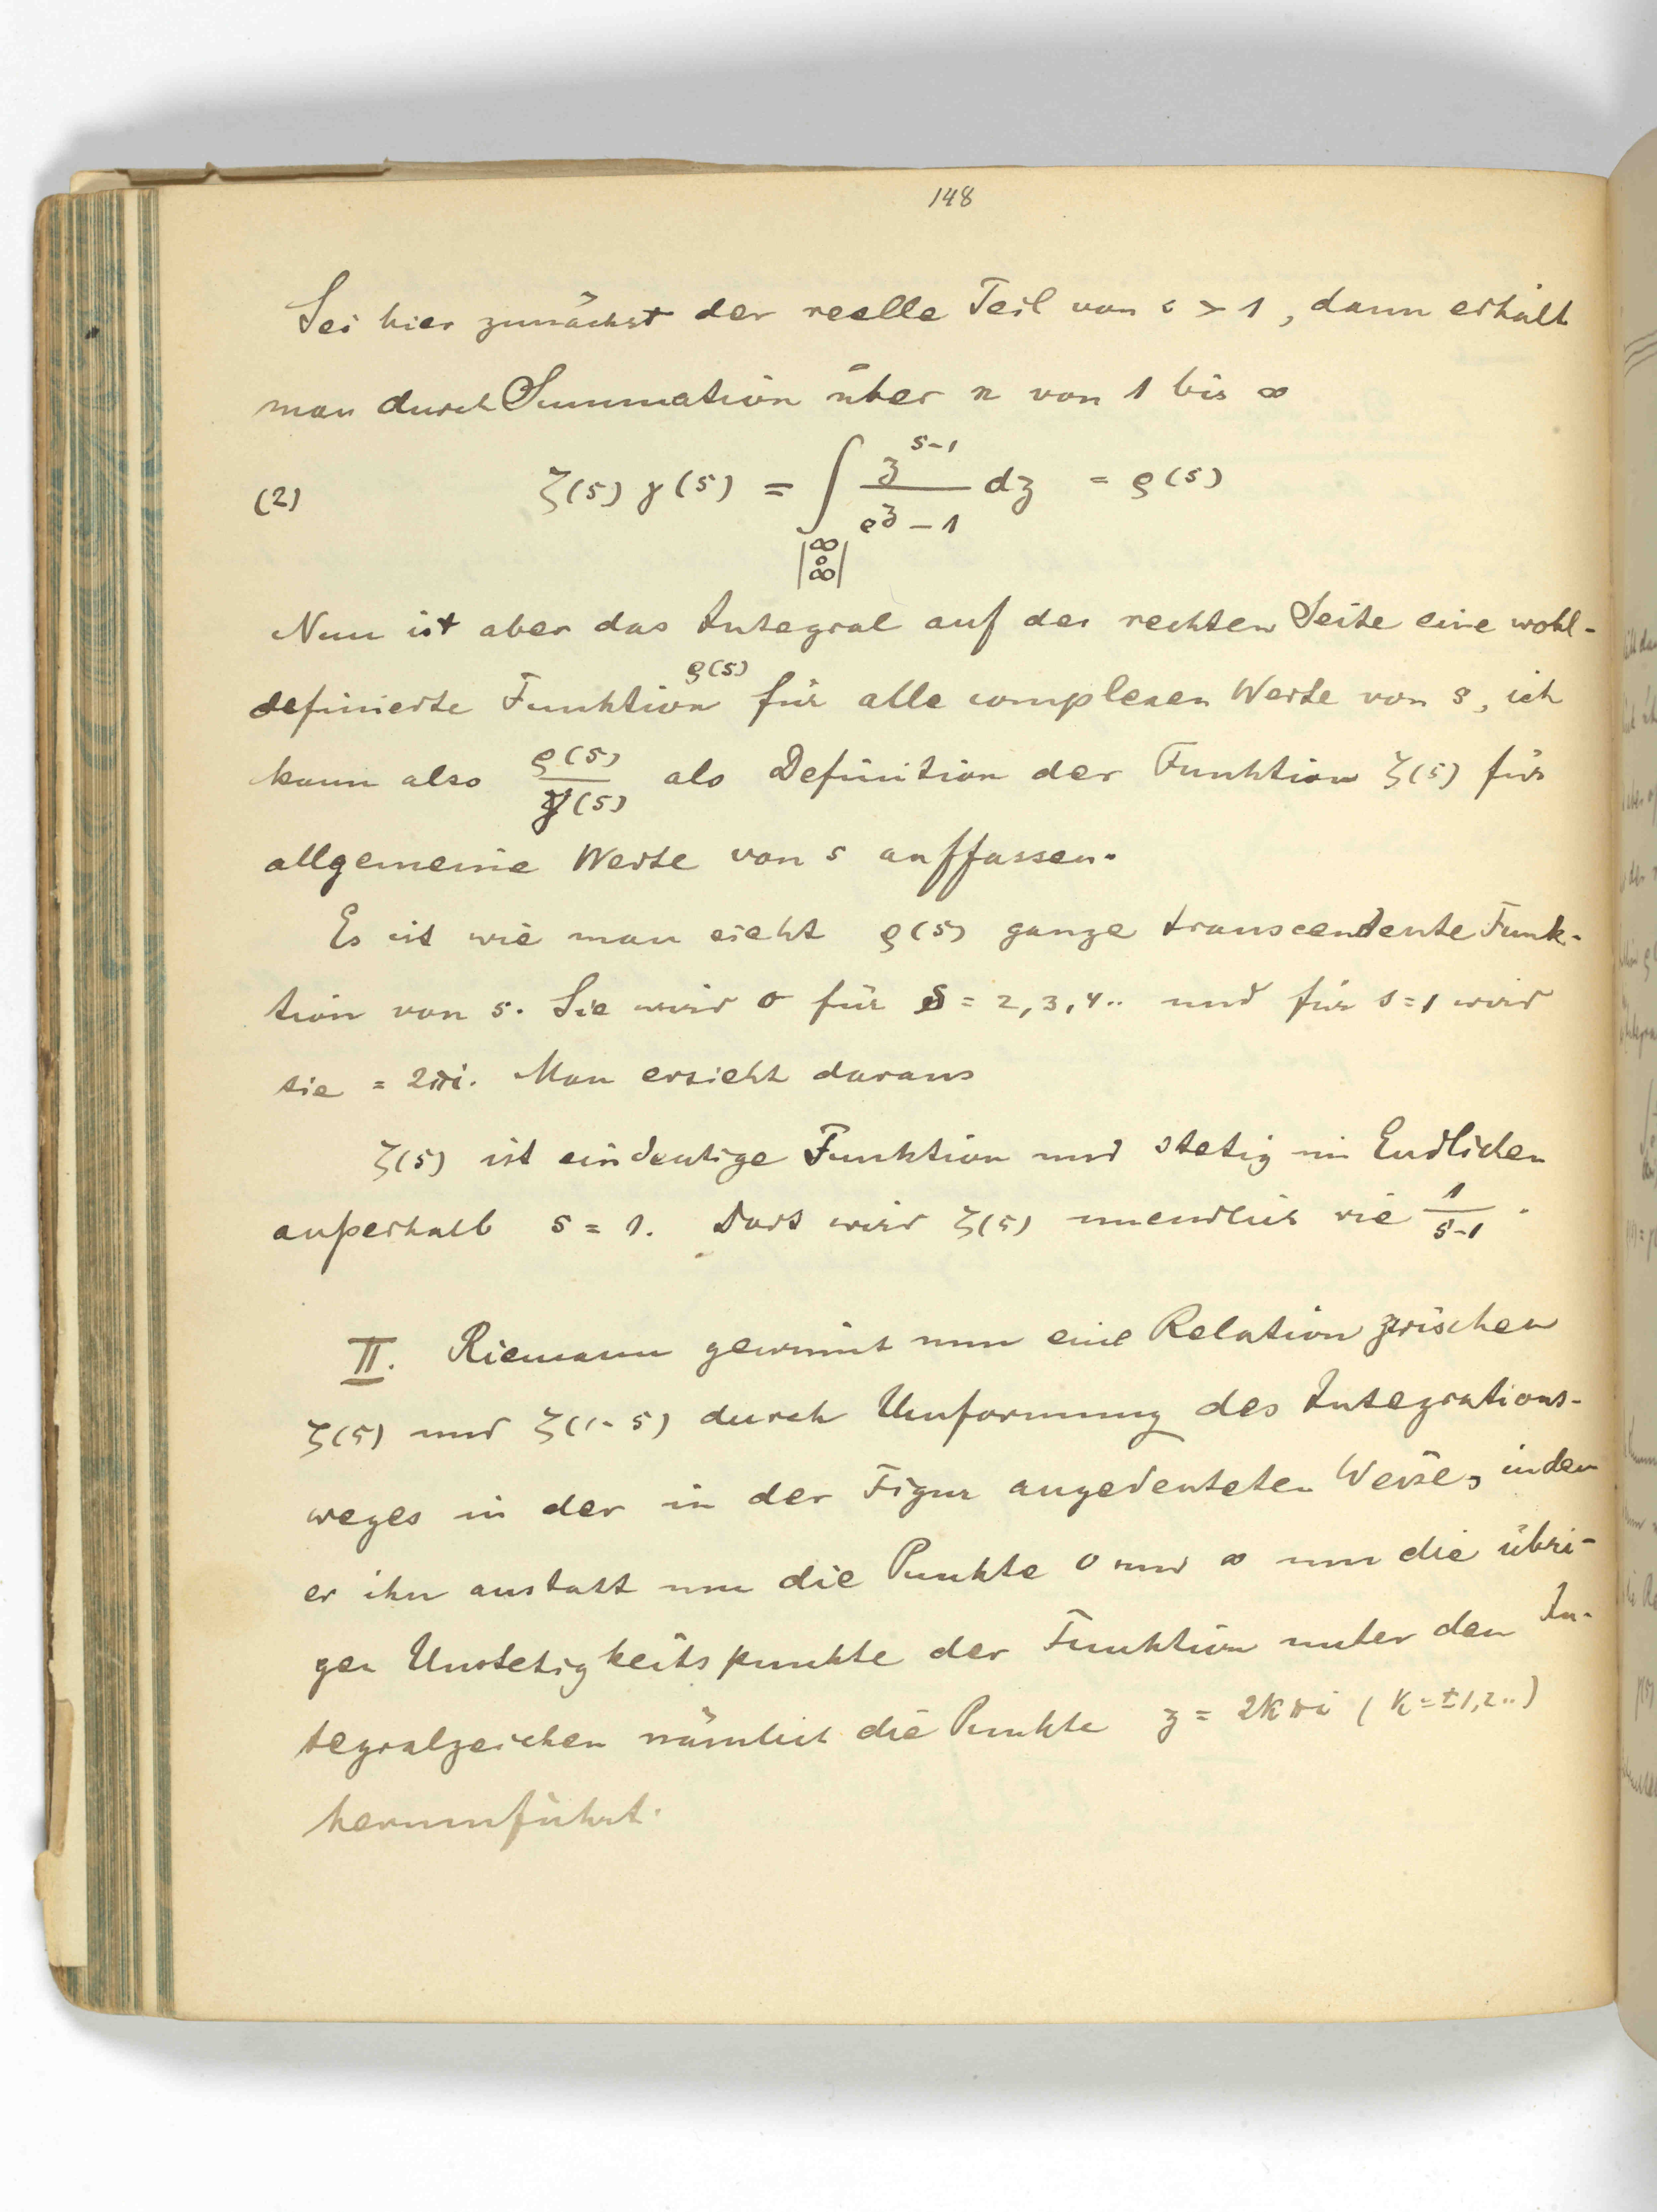 148
Sei hier zunächst der reelle Teil von s > 1, dann erhält
man durch Summation über n von 1 bis ∞
(2) ζ(s) γ(s) = ∫_{|∞ 0 ∞|} z^{s-1}/(e^z - 1) dz = ϱ(s)
Nun ist aber das Integral auf der rechten Seite eine wohl-
definierte Funktion ϱ(s) für alle complexen Werte von s, ich
kann also ϱ(s)/γ(s) als Definition der Funktion ζ(s) für
allgemeine Werte von s auffassen.
Es ist wie man sieht ϱ(s) ganze transcendente Funk-
tion von s. Sie wird 0 für s = 2, 3, 4.. und für s = 1 wird
sie = 2πi. Man ersieht daraus
ζ(s) ist eindeutige Funktion und stetig im Endlichen
außerhalb s = 1. Dort wird ζ(s) unendlich wie 1/(s-1).
II. Riemann gewinnt nun eine Relation zwischen
ζ(s) und ζ(1-s) durch Umformung des Integrations-
weges in der in der Figur angedeuteten Weise, indem
er ihn anstatt um die Punkte 0 und ∞ um die übri-
gen Unstetigkeitspunkte der Funktion unter dem In-
tegralzeichen nämlich die Punkte z = 2kπi (k=±1,2..)
herumführt.